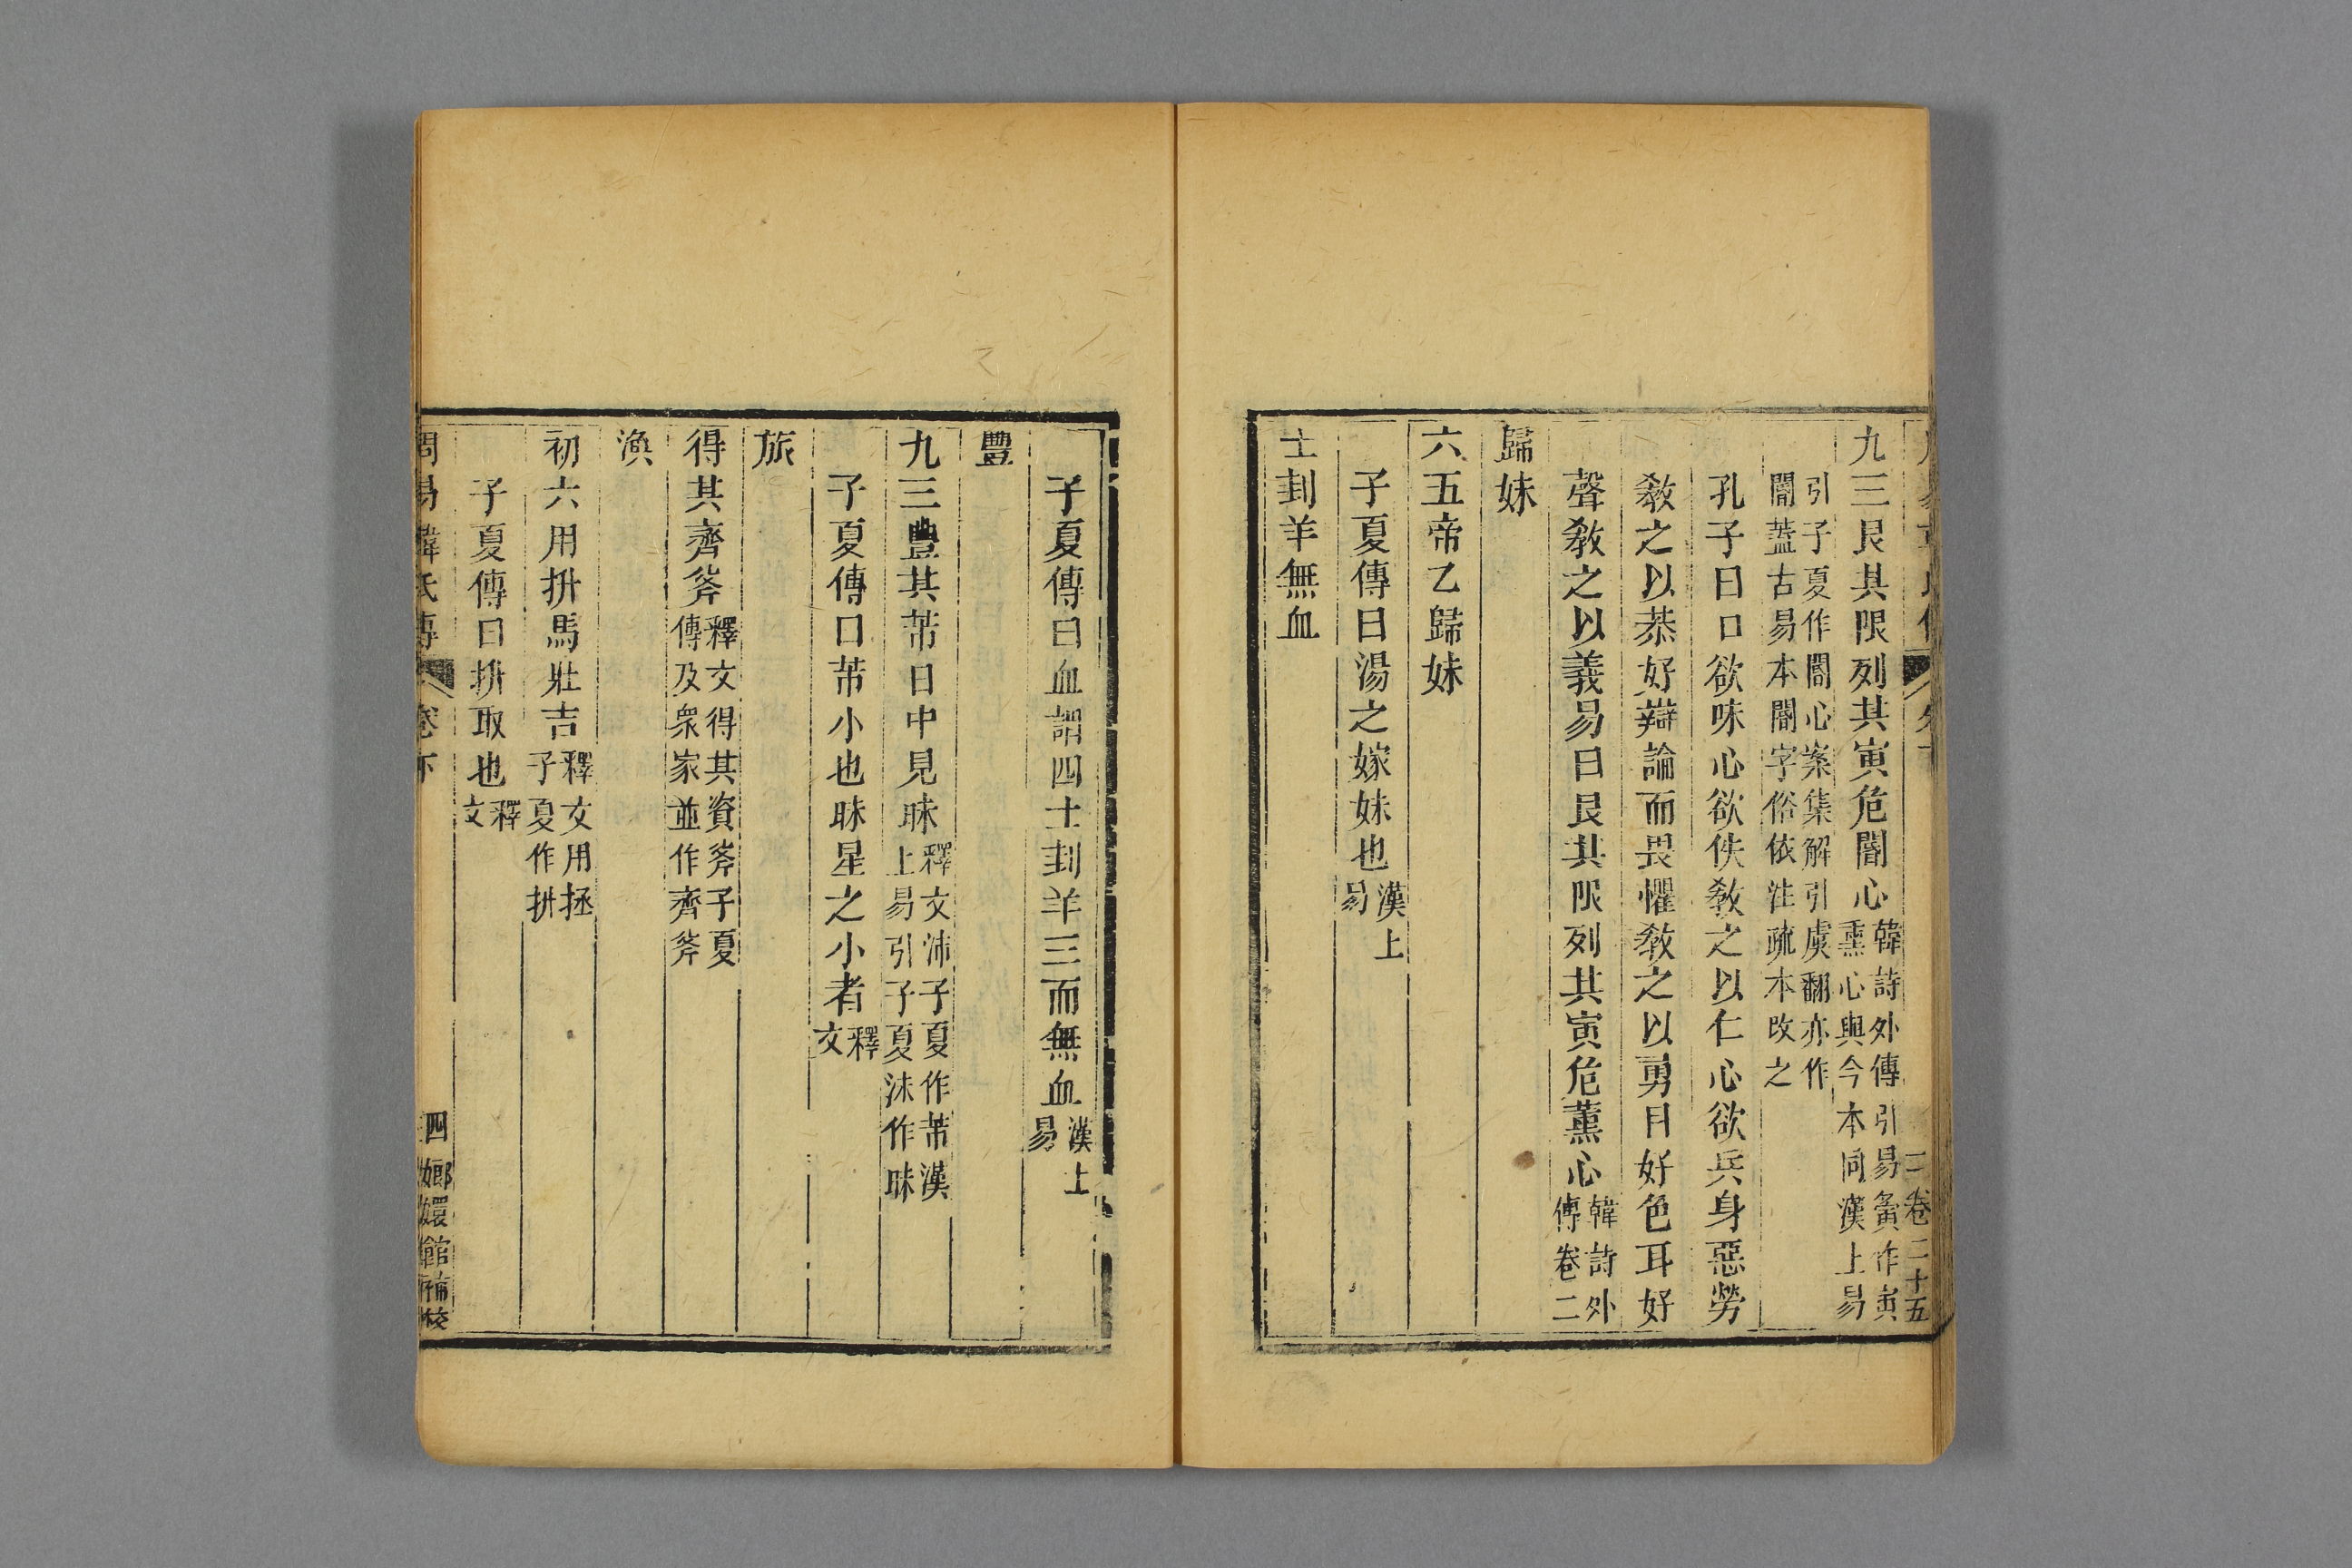 九三艮其限列其寅危闇心韓詩外傳引易夤作寅
熏心與今本同漢上易
引子夏作闇心案集解引虞翻亦作
闇蓋古易本闇字俗依注疏本改之
孔子曰口欲味心欲佚教之以仁心欲兵身惡勞
教之以恭好辯論而畏懼教之以勇目好色耳好
聲教之以義易曰艮其限列其寅危薰心韓詩外
傳卷二
歸妹
六五帝乙歸妹
子夏傳曰湯之嫁妹也漢上
易
士刲羊無血
二卷二十五
子夏傳曰血謂四士刲羊三而無血漢上
易
豐
九三豐其芾日中見昧釋文沛子夏作芾漢
上易引子夏沬作昧
子夏傳曰芾小也昧星之小者釋
文
旅
得其齊斧釋文得其資斧子夏
傳及衆家並作齊斧
渙
初六用拼馬壯吉釋文用拯
子夏作拼
子夏傳曰拼取也釋
文
周易韓氏傳 卷下 四 嫏嬛館補校